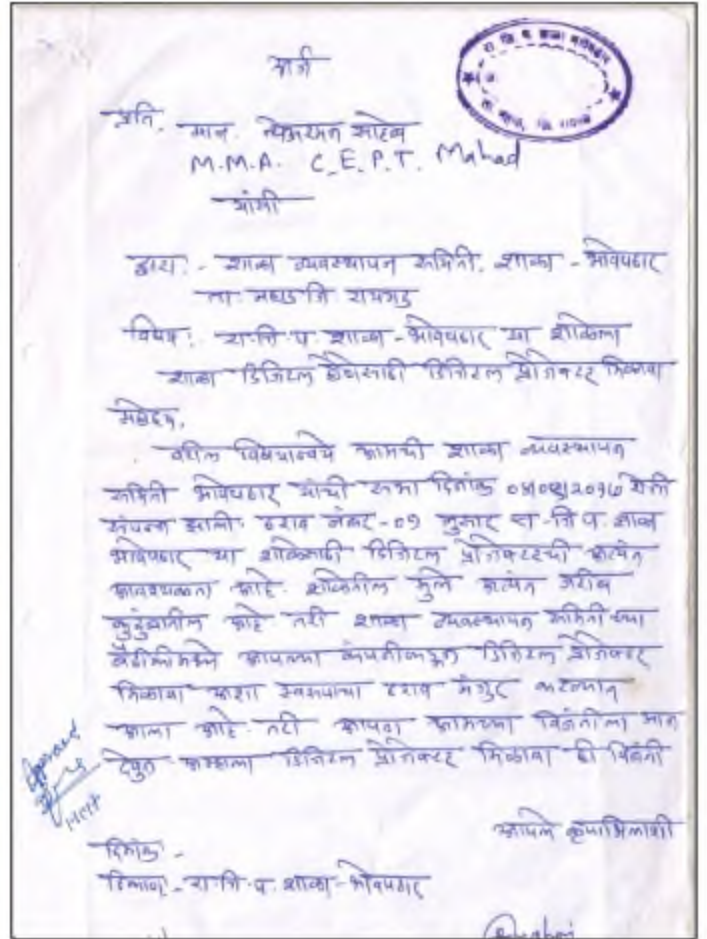 अर्ज
प्रति,
मान. चेअरमन साहेब
M.M.A. C.E.P.T. Mahad
यांसी
द्वारा :- शाळा व्यवस्थापन समिती. शाळा - भावेपठार
ता. महाड जि रायगड
विषय :- रा.जि.प. शाळा - भावेपठार या शाळेला
शाळा डिजिटल होणेसाठी डिजिटल प्रोजेक्टर मिळावा
महोदय,
वरील विषयान्वये आमची शाळा व्यवस्थापन
समिती भावेपठार यांची सभा दिनांक
संपन्न झाली. ठराव नंबर - ०१ नुसार रा.जि.प. शाळा
भावेपठार या शाळेसाठी डिजिटल प्रोजेक्टरची अत्यंत
आवश्यकता आहे. शाळेतील मुले अत्यंत गरीब
कुटुंबातील आहे तरी शाळा व्यवस्थापन समितीच्या
बैठकीमध्ये आपल्या कंपनीकडून डिजिटल प्रोजेक्टर
मिळावा अशा स्वरूपाचा ठराव मंजुर करण्यात
आला आहे. तरी आपण आमच्या विनंतीला मान
देवुन आम्हाला डिजिटल प्रोजेक्टर मिळावा ही विनंती
आपले कृपाभिलाशी
दिनांक -
ठिकाण - रा.जि.प. शाळा - भावेपठार